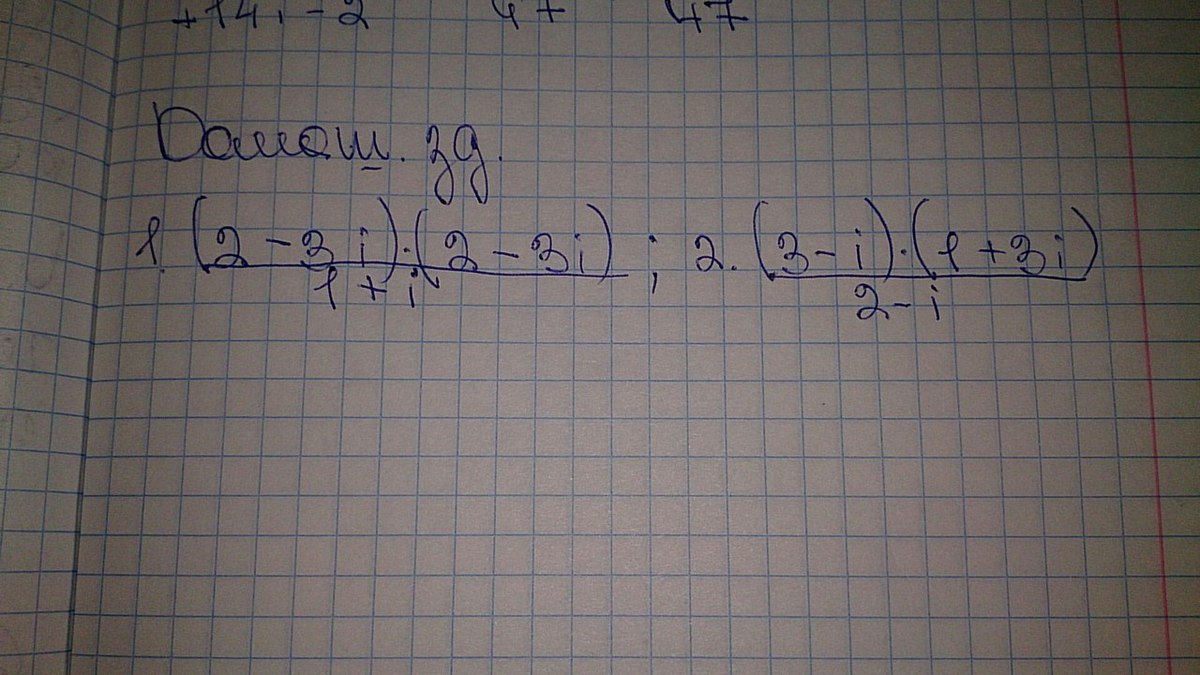 +14i-2 47 47
Домаш. зд.
1. (2-3i)·(2-3i) ; 2. (3-i)·(1+3i)
1+i 2-i